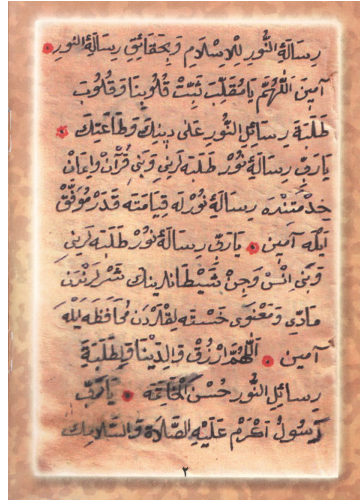 رِسَالَةَ النُّورِ لِلْاِسْلَامِ وَبِحَقَائِقِ رِسَالَةِ النُّورِ
آمِينَ اَللّٰهُمَّ يَا مُقَلِّبَ ثَبِّتْ قُلُوبَنَا وَقُلُوبَ
طَلَبَةِ رِسَائِلِ النُّورِ عَلَى دِينِكَ وَطَاعَتِكَ
يَارَبِّ رِسَالَۀ نُورْ طَلَبَه لَرِينِى وَبَنِى قُرْاٰنْ وَاِيمَانْ
خِدْمَتِنْدَه رِسَالَۀ نُورْلَه قِيَامَتَه قَدَرْ مُوَفَّقْ
اَيْلَه آمِينْ يَارَبِّ رِسَالَۀ نُورْ طَلَبَه لَرِينِى
وَبَنِى اِنْسْ وَجِنْ شَيْطَانْلَرِينِكْ شَرْلَرِنْدَنْ
مَادِّى وَمَعْنَوِى خَسْتَه لِقْلَرْدَنْ مُحَافَظَه اَيْلَه
آمِينْ اَللّٰهُمَّ ارْزُقْ وَالِدَيْنَا وَلِطَلَبَةِ
رِسَائِلِ النُّورِ حُسْنَ الْخَاتِمَه يَارَبِّ
رَسُولُ اَكْرَمْ عَلَيْهِ الصَّلَاةُ وَالسَّلَامِكْ
٢